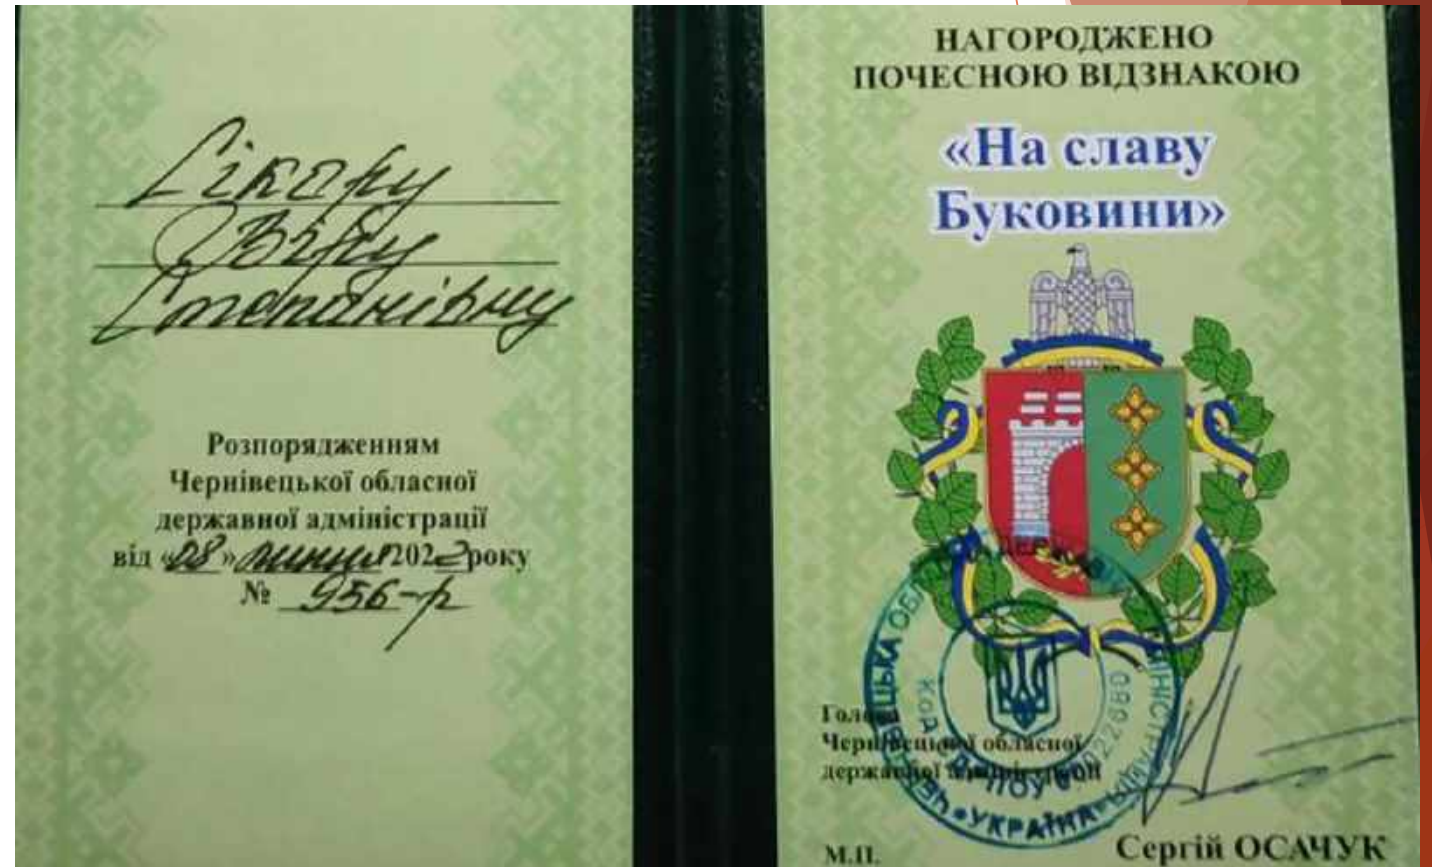 Сікору
Віру
Степанівну
Розпорядженням
Чернівецької обласної
державної адміністрації
від «08» липня 2022 року
№ 956-р
НАГОРОДЖЕНО
ПОЧЕСНОЮ ВІДЗНАКОЮ
«На славу
Буковини»
Голова
Чернівецької обласної
державної адміністрації
М.П.
Сергій ОСАЧУК
УКРАЇНА